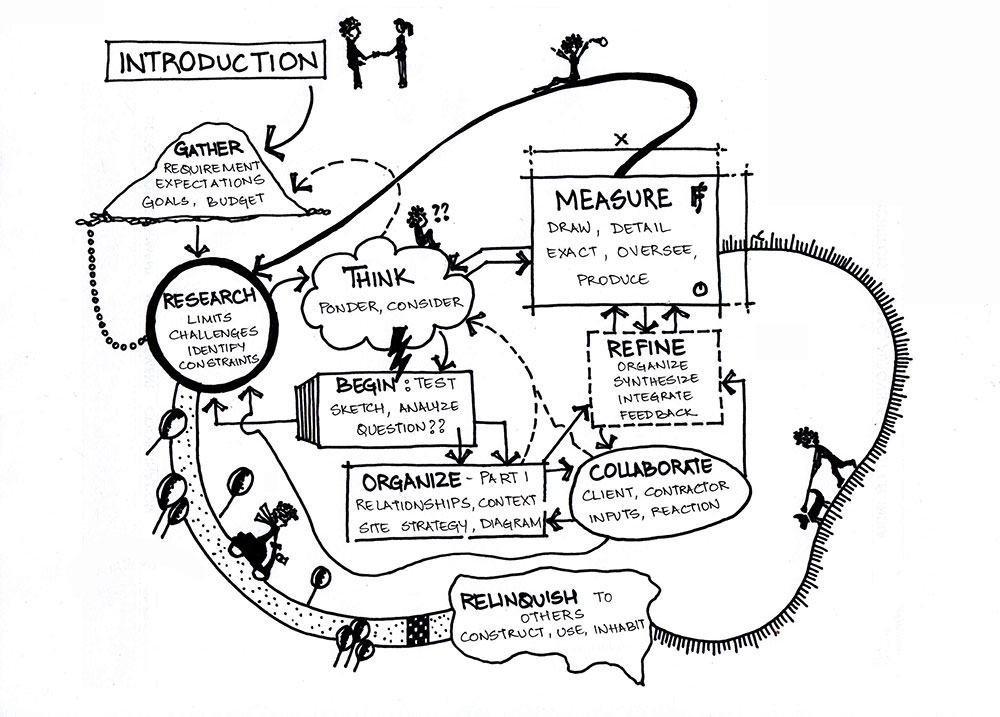 INTRODUCTION
GATHER
REQUIREMENT
EXPECTATIONS
GOALS, BUDGET
RESEARCH
LIMITS
CHALLENGES
IDENTIFY
CONSTRAINTS
??
THINK
PONDER, CONSIDER
X
MEASURE
DRAW, DETAIL
EXACT, OVERSEE,
PRODUCE
BEGIN: TEST
SKETCH, ANALYZE
QUESTION??
REFINE
ORGANIZE
SYNTHESIZE
INTEGRATE
FEEDBACK
ORGANIZE - PART 1
RELATIONSHIPS, CONTEXT
SITE STRATEGY, DIAGRAM
COLLABORATE
CLIENT, CONTRACTOR
INPUTS, REACTION
RELINQUISH TO
OTHERS
CONSTRUCT, USE, INHABIT